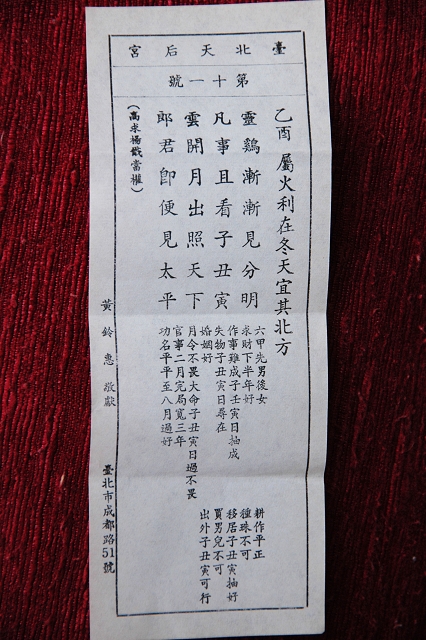 臺北天后宮
第十一號
乙酉屬火利在冬天宜其北方
靈鷄漸漸見分明
凡事且看子丑寅
雲開月出照天下
郎君卽便見太平
(高求楊戩當權)
六甲先男後女
求財下半年好
作事難成子壬寅日抽成
失物子丑寅日尋在
婚姻好
月令不畏大命子丑寅日過不畏
官事二月完局寬三年
功名平平至八月過好
耕作平正
種珠不可
移居子丑寅抽好
買男兒不可
出外子丑寅可行
黃鈴惠敬獻
臺北市成都路51號